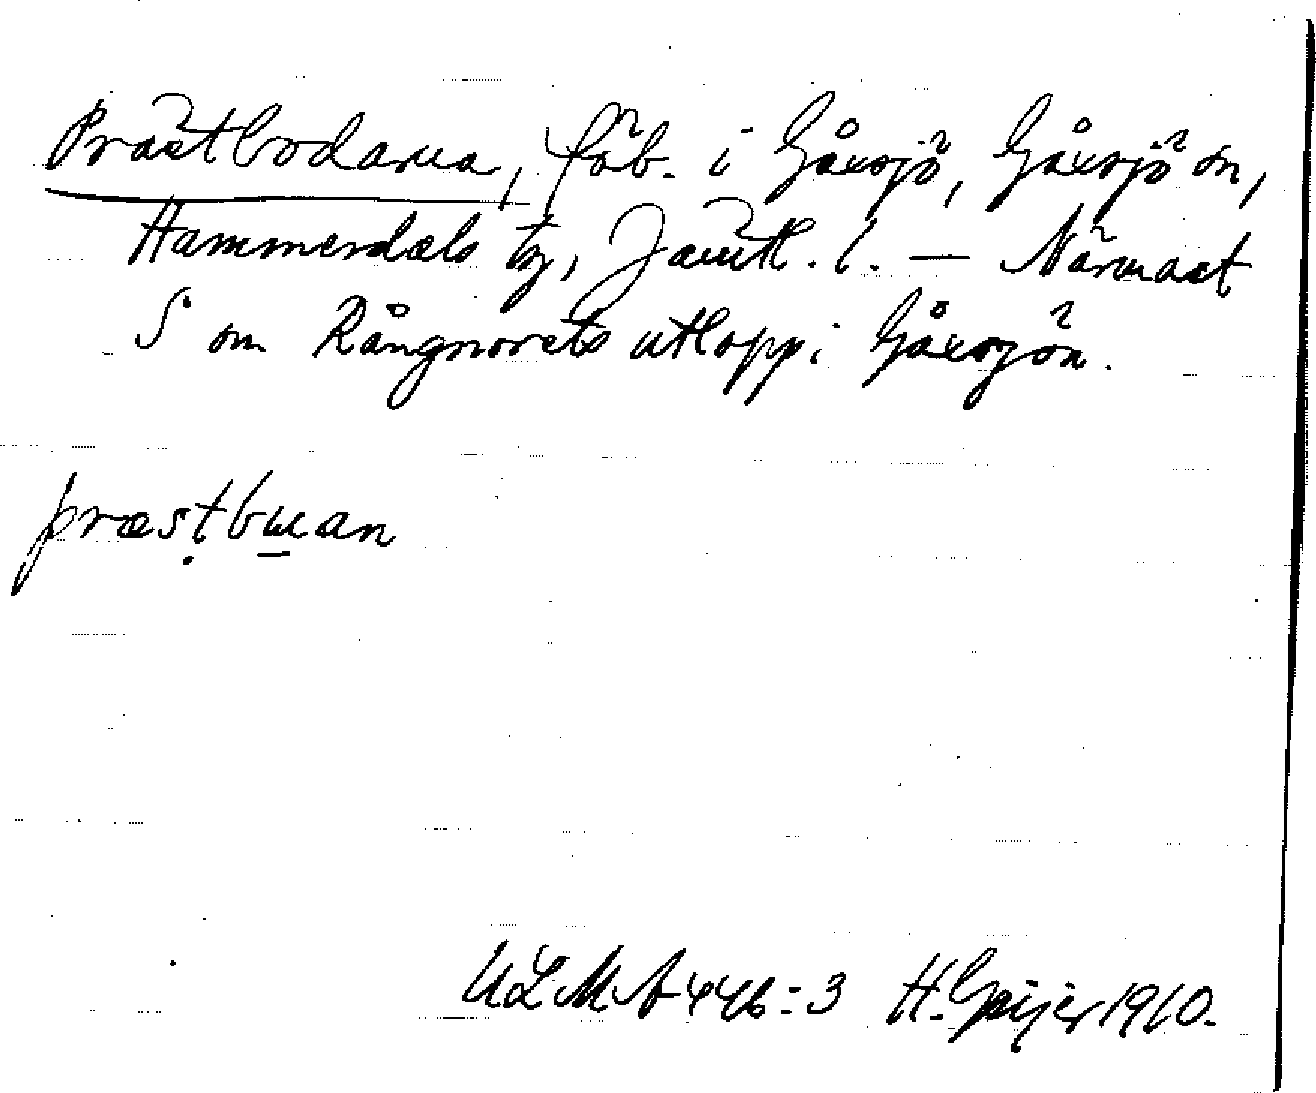 Prästbodarna, fäb. i Gåxsjö, Gåxsjö sn,
Hammerdals tg, Jämtl. l. — Närmast
S om Rångnorets utlopp i Gåxsjön.
præsṭbɯan
ULMA 446:3 H. Geijer 1910.